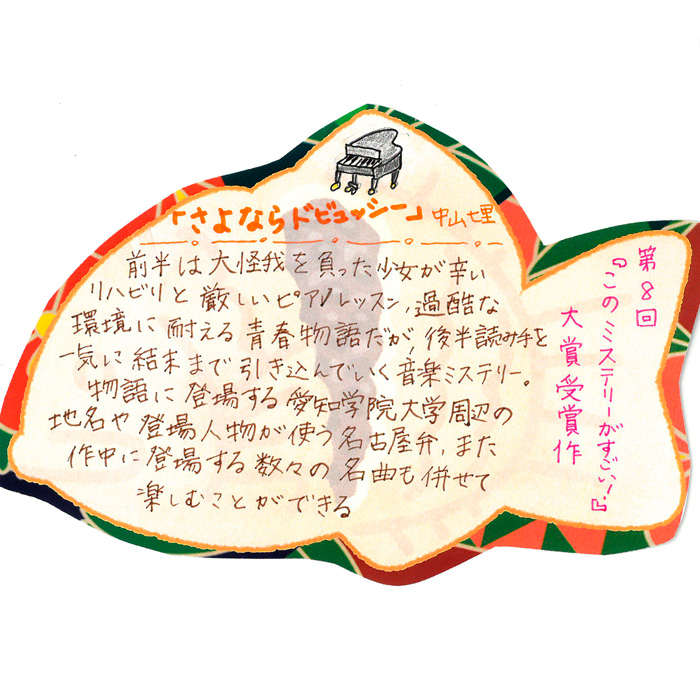 「さよならドビュッシー」中山七里
前半は大怪我を負った少女が辛い
リハビリと厳しいピアノレッスン、過酷な
環境に耐える青春物語だが、後半読み手を
一気に結末まで引き込んでいく音楽ミステリー。
物語に登場する愛知学院大学周辺の
地名や登場人物が使う名古屋弁、また
作中に登場する数々の名曲も併せて
楽しむことができる
第8回
『このミステリーがすごい!』
大賞受賞作